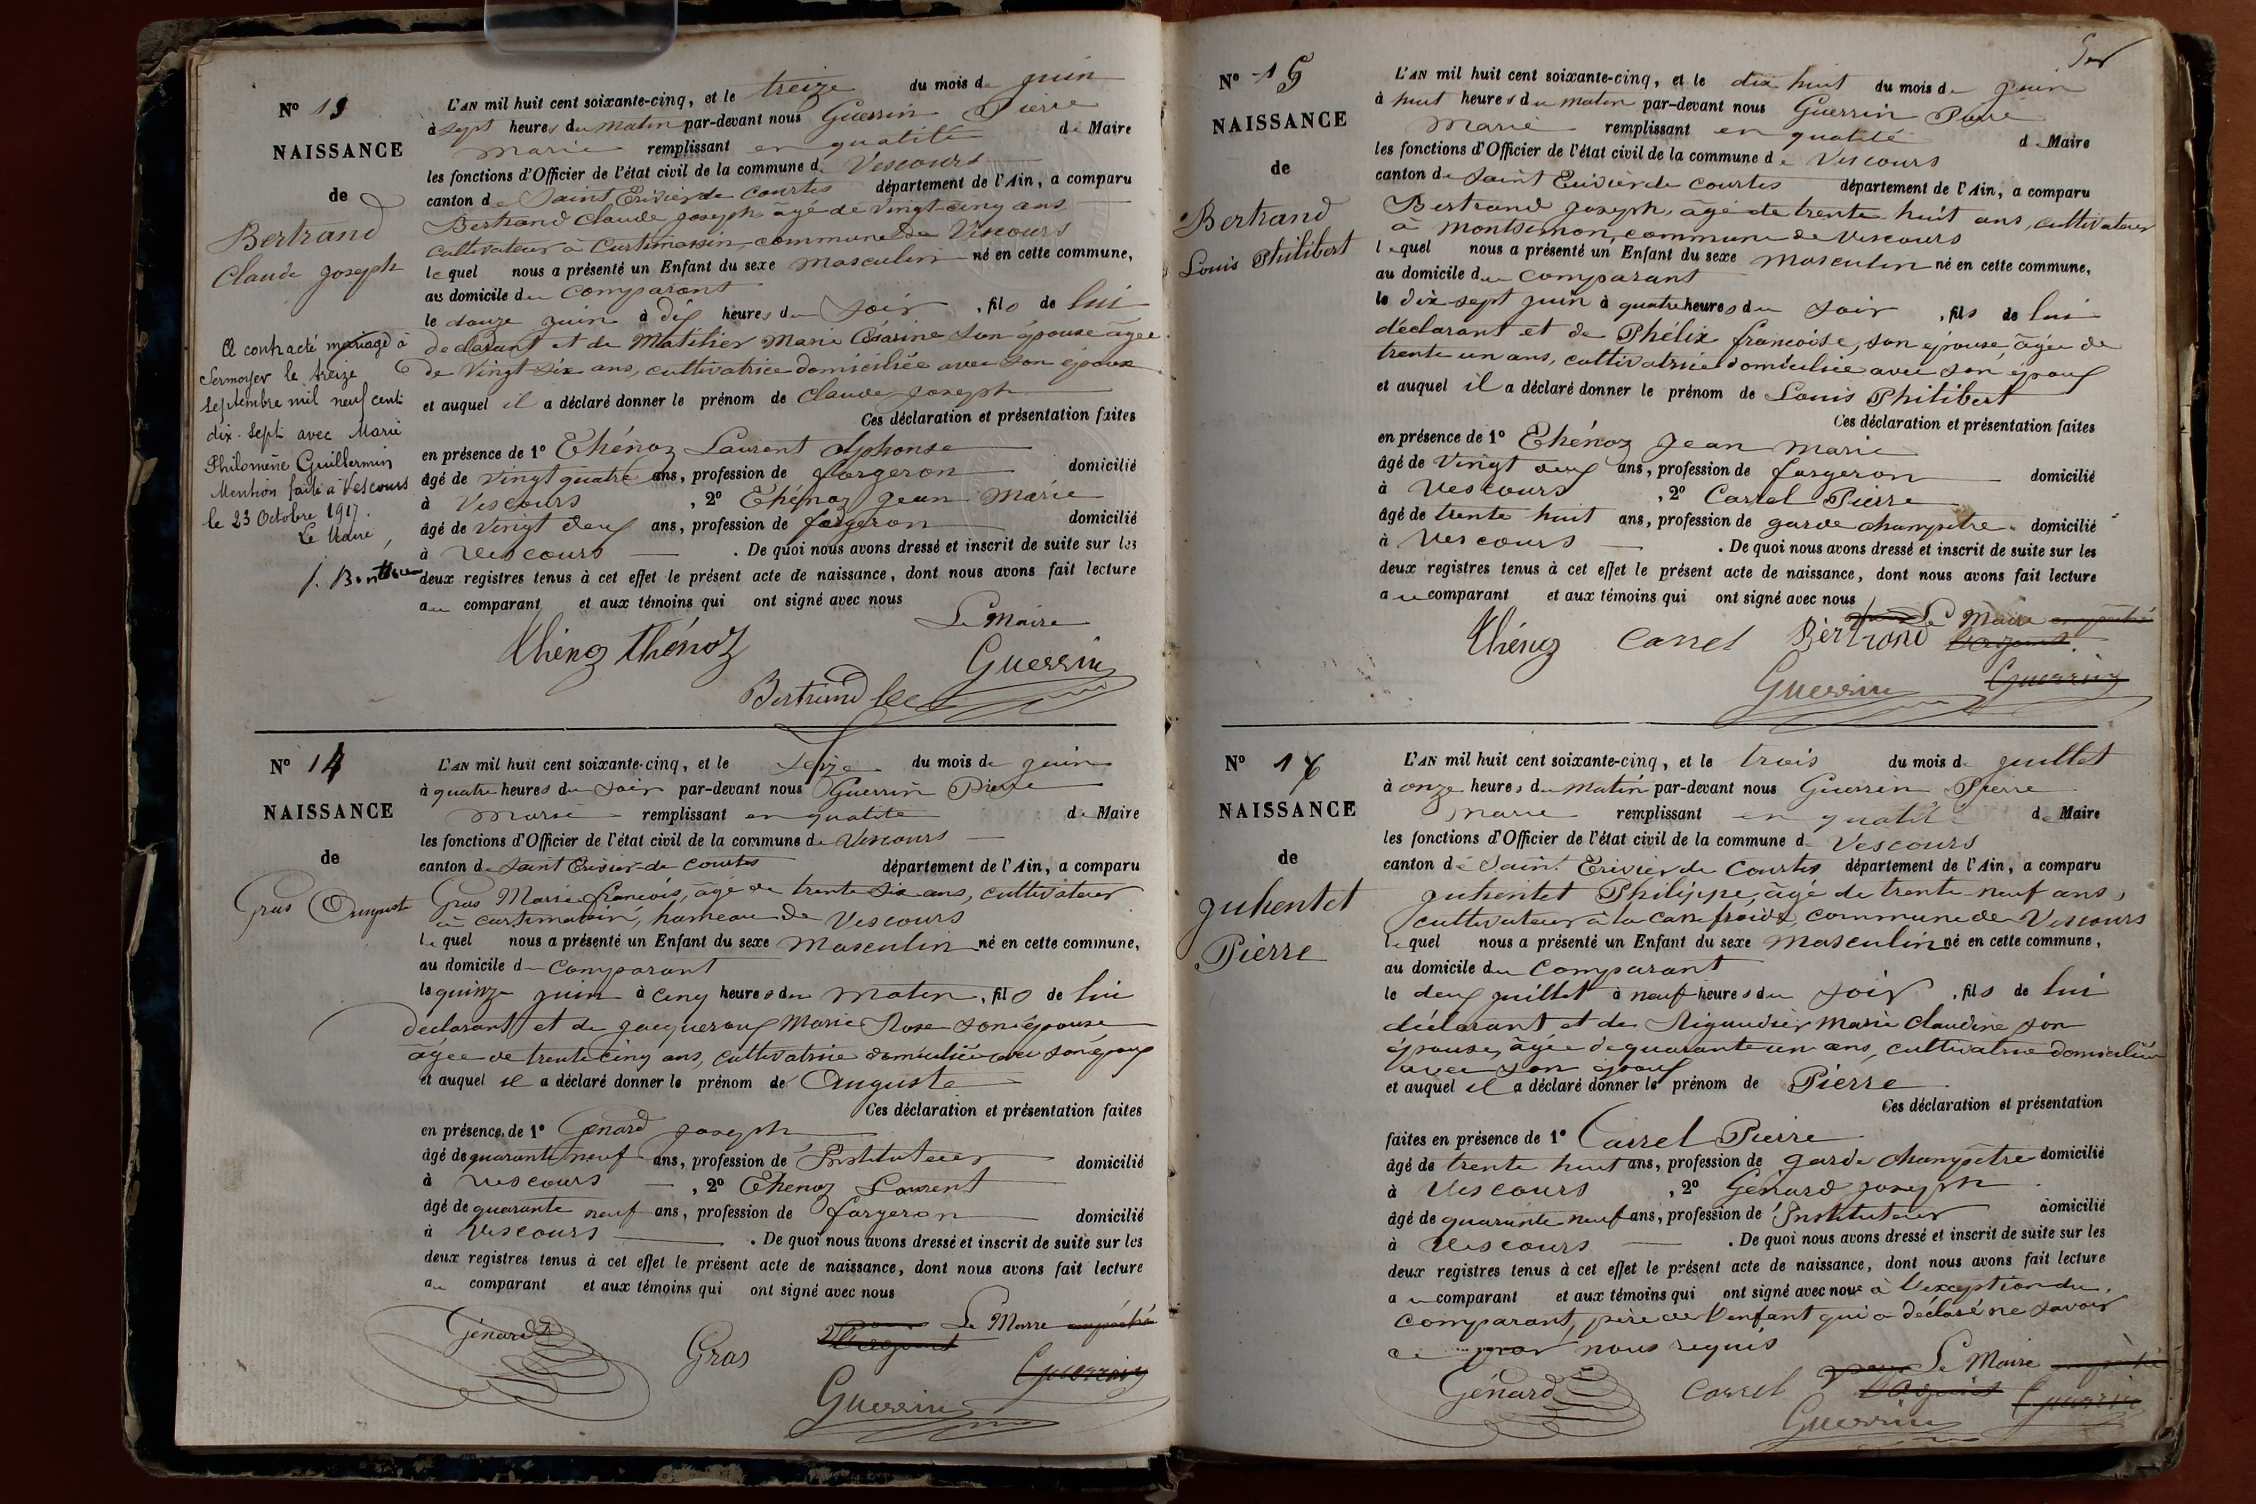 Nº 13
NAISSANCE
de
Bertrand
Claude Joseph
A contracté mariage à
Sermoyer le treize
Septembre mil neuf cent
dix-sept avec Marie
Philomène Guillermin
Mention faite à Vescours
le 23 Octobre 1917.
Le Maire,
L'AN mil huit cent soixante-cinq, et le treize du mois de juin
à sept heures du matin par-devant nous Guerrin Pierre
Marie remplissant en qualité de Maire
les fonctions d'Officier de l'état civil de la commune de Vescours
canton de Saint Trivier de Courtes département de l'Ain, a comparu
Bertrand Claude Joseph âgé de vingt cinq ans
cultivateur à Curtimassin commune de Vescours
lequel nous a présenté un Enfant du sexe masculin né en cette commune,
au domicile du comparant
le douze juin à dix heures du soir, fils de lui
déclarant et de Matihier Marie Césarine son épouse âgée
de vingt six ans, cultivatrice domiciliée avec son époux
et auquel il a déclaré donner le prénom de Claude Joseph
Ces déclaration et présentation faites
en présence de 1º Thénoz Laurent Alphonse
âgé de vingt quatre ans, profession de forgeron domicilié
à Vescours, 2º Thénoz Jean Marie
âgé de vingt deux ans, profession de forgeron domicilié
à Vescours. De quoi nous avons dressé et inscrit de suite sur les
deux registres tenus à cet effet le présent acte de naissance, dont nous avons fait lecture
au comparant et aux témoins qui ont signé avec nous
Le Maire
Thénoz Thénoz
Guerrin
Bertrand
Nº 14
NAISSANCE
de
Gras Auguste
L'AN mil huit cent soixante-cinq, et le seize du mois de juin
à quatre heures du soir par-devant nous Guerrin Pierre
Marie remplissant en qualité de Maire
les fonctions d'Officier de l'état civil de la commune de Vescours
canton de Saint Trivier de Courtes département de l'Ain, a comparu
Gras Marie François, âgé de trente six ans, cultivateur
à Curtimassin, hameau de Vescours
lequel nous a présenté un Enfant du sexe masculin né en cette commune,
au domicile du comparant
le quinze juin à cinq heures du matin, fils de lui
déclarant et de Jacqueroux Marie Rose son épouse
âgée de trente cinq ans, cultivatrice domiciliée avec son époux
et auquel il a déclaré donner le prénom de Auguste
Ces déclaration et présentation faites
en présence de 1º Génard Joseph
âgé de quarante neuf ans, profession de Instituteur domicilié
à Vescours, 2º Thenoz Laurent
âgé de quarante neuf ans, profession de forgeron domicilié
à Vescours. De quoi nous avons dressé et inscrit de suite sur les
deux registres tenus à cet effet le présent acte de naissance, dont nous avons fait lecture
au comparant et aux témoins qui ont signé avec nous
pour Le Maire empêché
Génard
Gras
Guerrin
Guerrin
Nº 15
NAISSANCE
de
Bertrand
Louis Philibert
L'AN mil huit cent soixante-cinq, et le dix huit du mois de juin
à huit heures du matin par-devant nous Guerrin Pierre
Marie remplissant en qualité de Maire
les fonctions d'Officier de l'état civil de la commune de Vescours
canton de Saint Trivier de Courtes département de l'Ain, a comparu
Bertrand Joseph, âgé de trente huit ans, cultivateur
à Montsimon, commune de Vescours
lequel nous a présenté un Enfant du sexe masculin né en cette commune,
au domicile du comparant
le dix sept juin à quatre heures du soir, fils de lui
déclarant et de Phélix françoise, son épouse, âgée de
trente un ans, cultivatrice domiciliée avec son époux
et auquel il a déclaré donner le prénom de Louis Philibert
Ces déclaration et présentation faites
en présence de 1º Thénoz Jean Marie
âgé de vingt deux ans, profession de forgeron domicilié
à Vescours, 2º Carrel Pierre
âgé de trente huit ans, profession de garde champêtre domicilié
à Vescours. De quoi nous avons dressé et inscrit de suite sur les
deux registres tenus à cet effet le présent acte de naissance, dont nous avons fait lecture
au comparant et aux témoins qui ont signé avec nous
pour Le Maire empêché
Thénoz Carrel Bertrand
Guerrin Guerrin
Nº 16
NAISSANCE
de
Juhentet
Pierre
L'AN mil huit cent soixante-cinq, et le trois du mois de juillet
à onze heures du matin par-devant nous Guerrin Pierre
Marie remplissant en qualité de Maire
les fonctions d'Officier de l'état civil de la commune de Vescours
canton de Saint Trivier de Courtes département de l'Ain, a comparu
Juhentet Philippe, âgé de trente neuf ans,
cultivateur à la Case froide, commune de Vescours
lequel nous a présenté un Enfant du sexe masculin né en cette commune,
au domicile du comparant
le deux juillet à neuf heures du soir, fils de lui
déclarant et de Rigaudier Marie Claudine son
épouse, âgée de quarante un ans, cultivatrice domiciliée
avec son époux
et auquel il a déclaré donner le prénom de Pierre
Ces déclaration et présentation
faites en présence de 1º Carrel Pierre
âgé de trente huit ans, profession de garde champêtre domicilié
à Vescours, 2º Génard Joseph
âgé de quarante neuf ans, profession de Instituteur domicilié
à Vescours. De quoi nous avons dressé et inscrit de suite sur les
deux registres tenus à cet effet le présent acte de naissance, dont nous avons fait lecture
au comparant et aux témoins qui ont signé avec nous à l'exception du
comparant, père de l'enfant qui a déclaré ne savoir
ce par nous requis
pour Le Maire empêché
Génard Carrel
Guerrin Guerrin